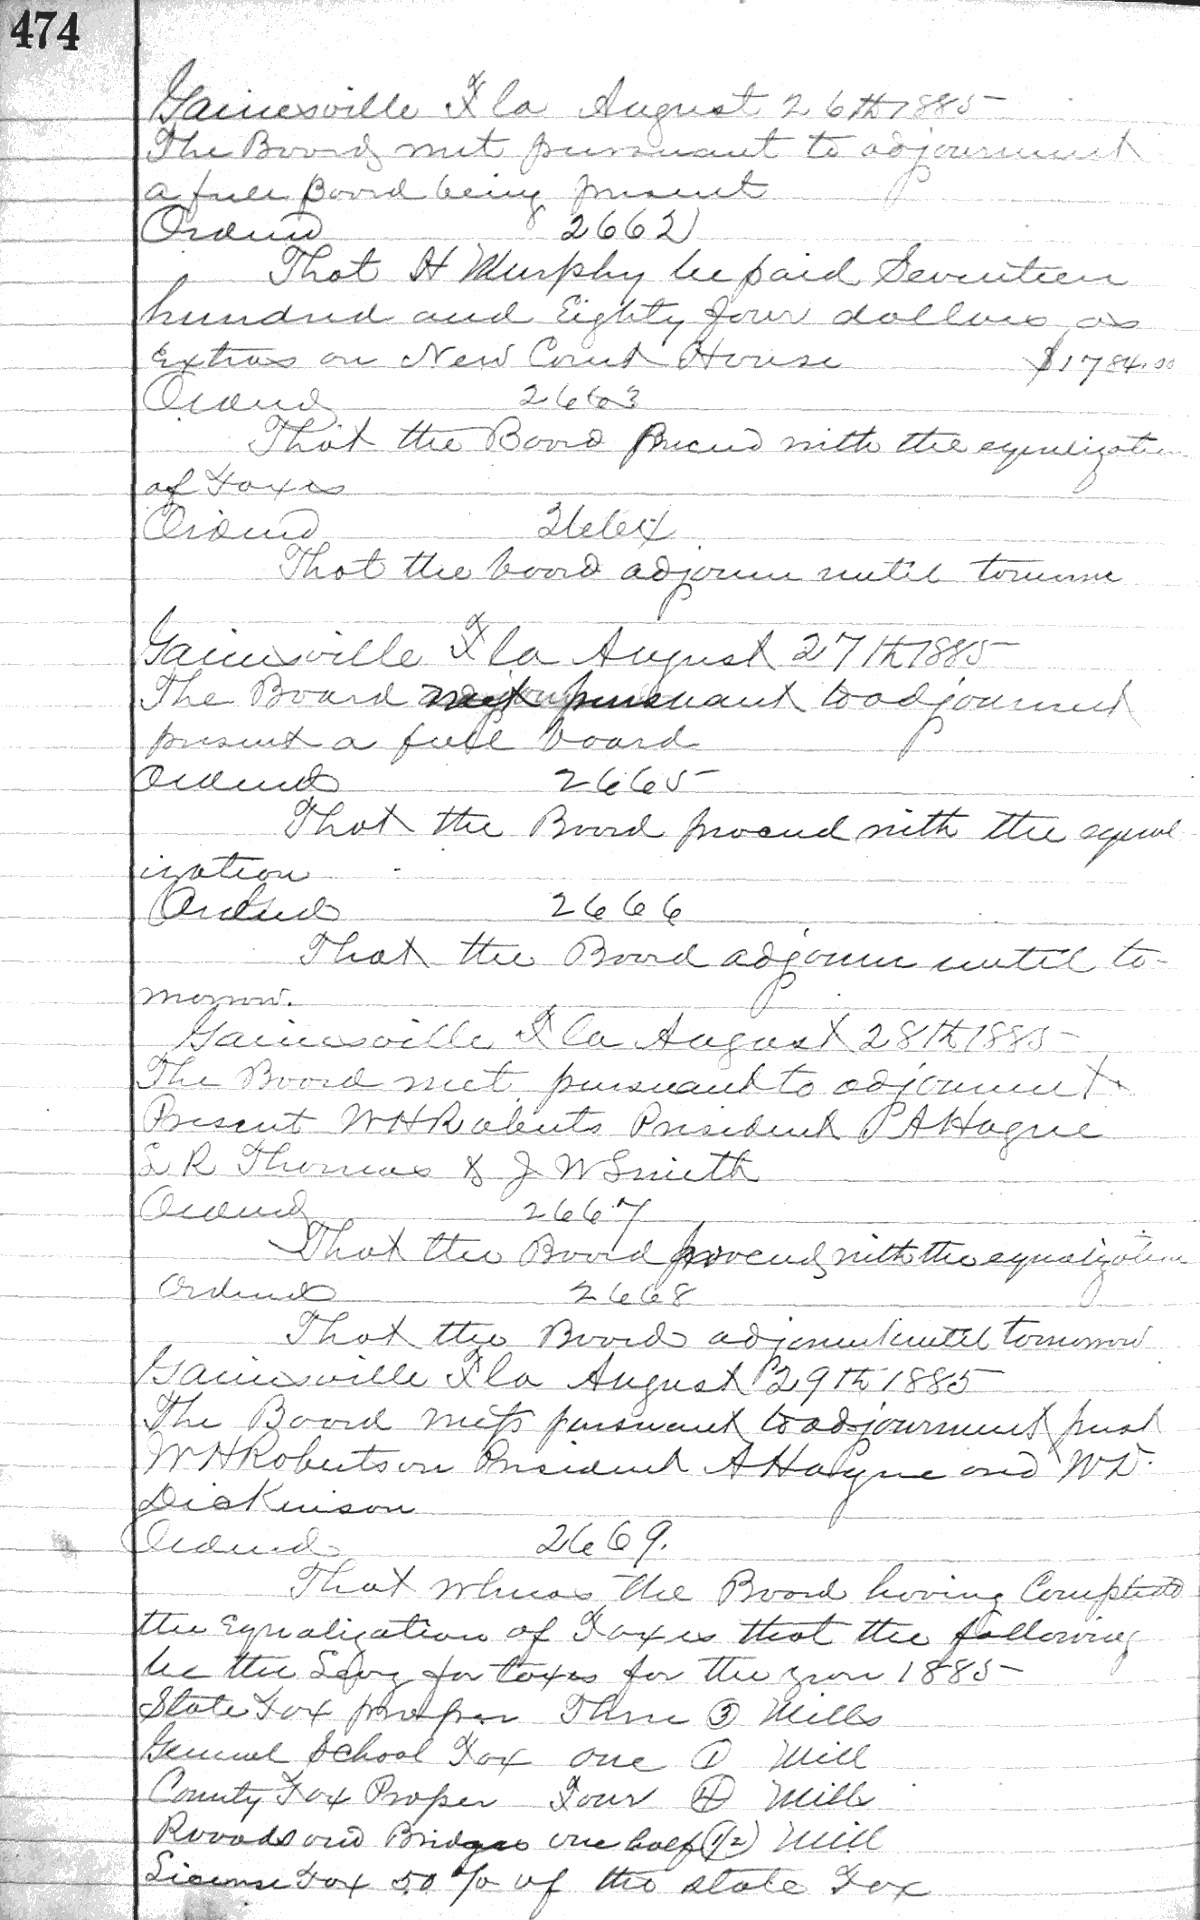 474
Gainesville Fla August 26th 1885
The Board met pursuant to adjournment
a full Board being present
Ordered 2662
That H Murphy be paid Seventeen
hundred and Eighty four dollars as
Extras on New Court House $1784.00
Ordered 2663
That the Board proceed with the equalization
of Taxes
Ordered 2664
That the board adjourn until
Gainesville Fla August 27th 1885
The Board met pursuant to adjournment
present a full board
Ordered 2665
That the Board proceed with the equal
ization
Ordered 2666
That the Board adjourn until to-
morrow.
Gainesville Fla August 28th 1885
The Board met pursuant to adjournment
Present W H Roberts President P A Hague
L R Thomas & J W Smith
Ordered 2667
That the Board proceed with the equalization
Ordered 2668
That the Board adjourn until tomorrow
Gainesville Fla August 29th 1885
The Board met pursuant to adjournment
W H Robertson President A Hague and W D.
Dickinson
Ordered 2669.
That whereas the Board having Completed
the Equalization of Taxes that the following
be the Levy for taxes for the year 1885
State Tax proper Three (3) Mills
General School Tax one (1) Mill
County Tax Proper Four (4) Mills
Roads and Bridges one half (1/2) Mill
License Tax 50 % of the state Tax